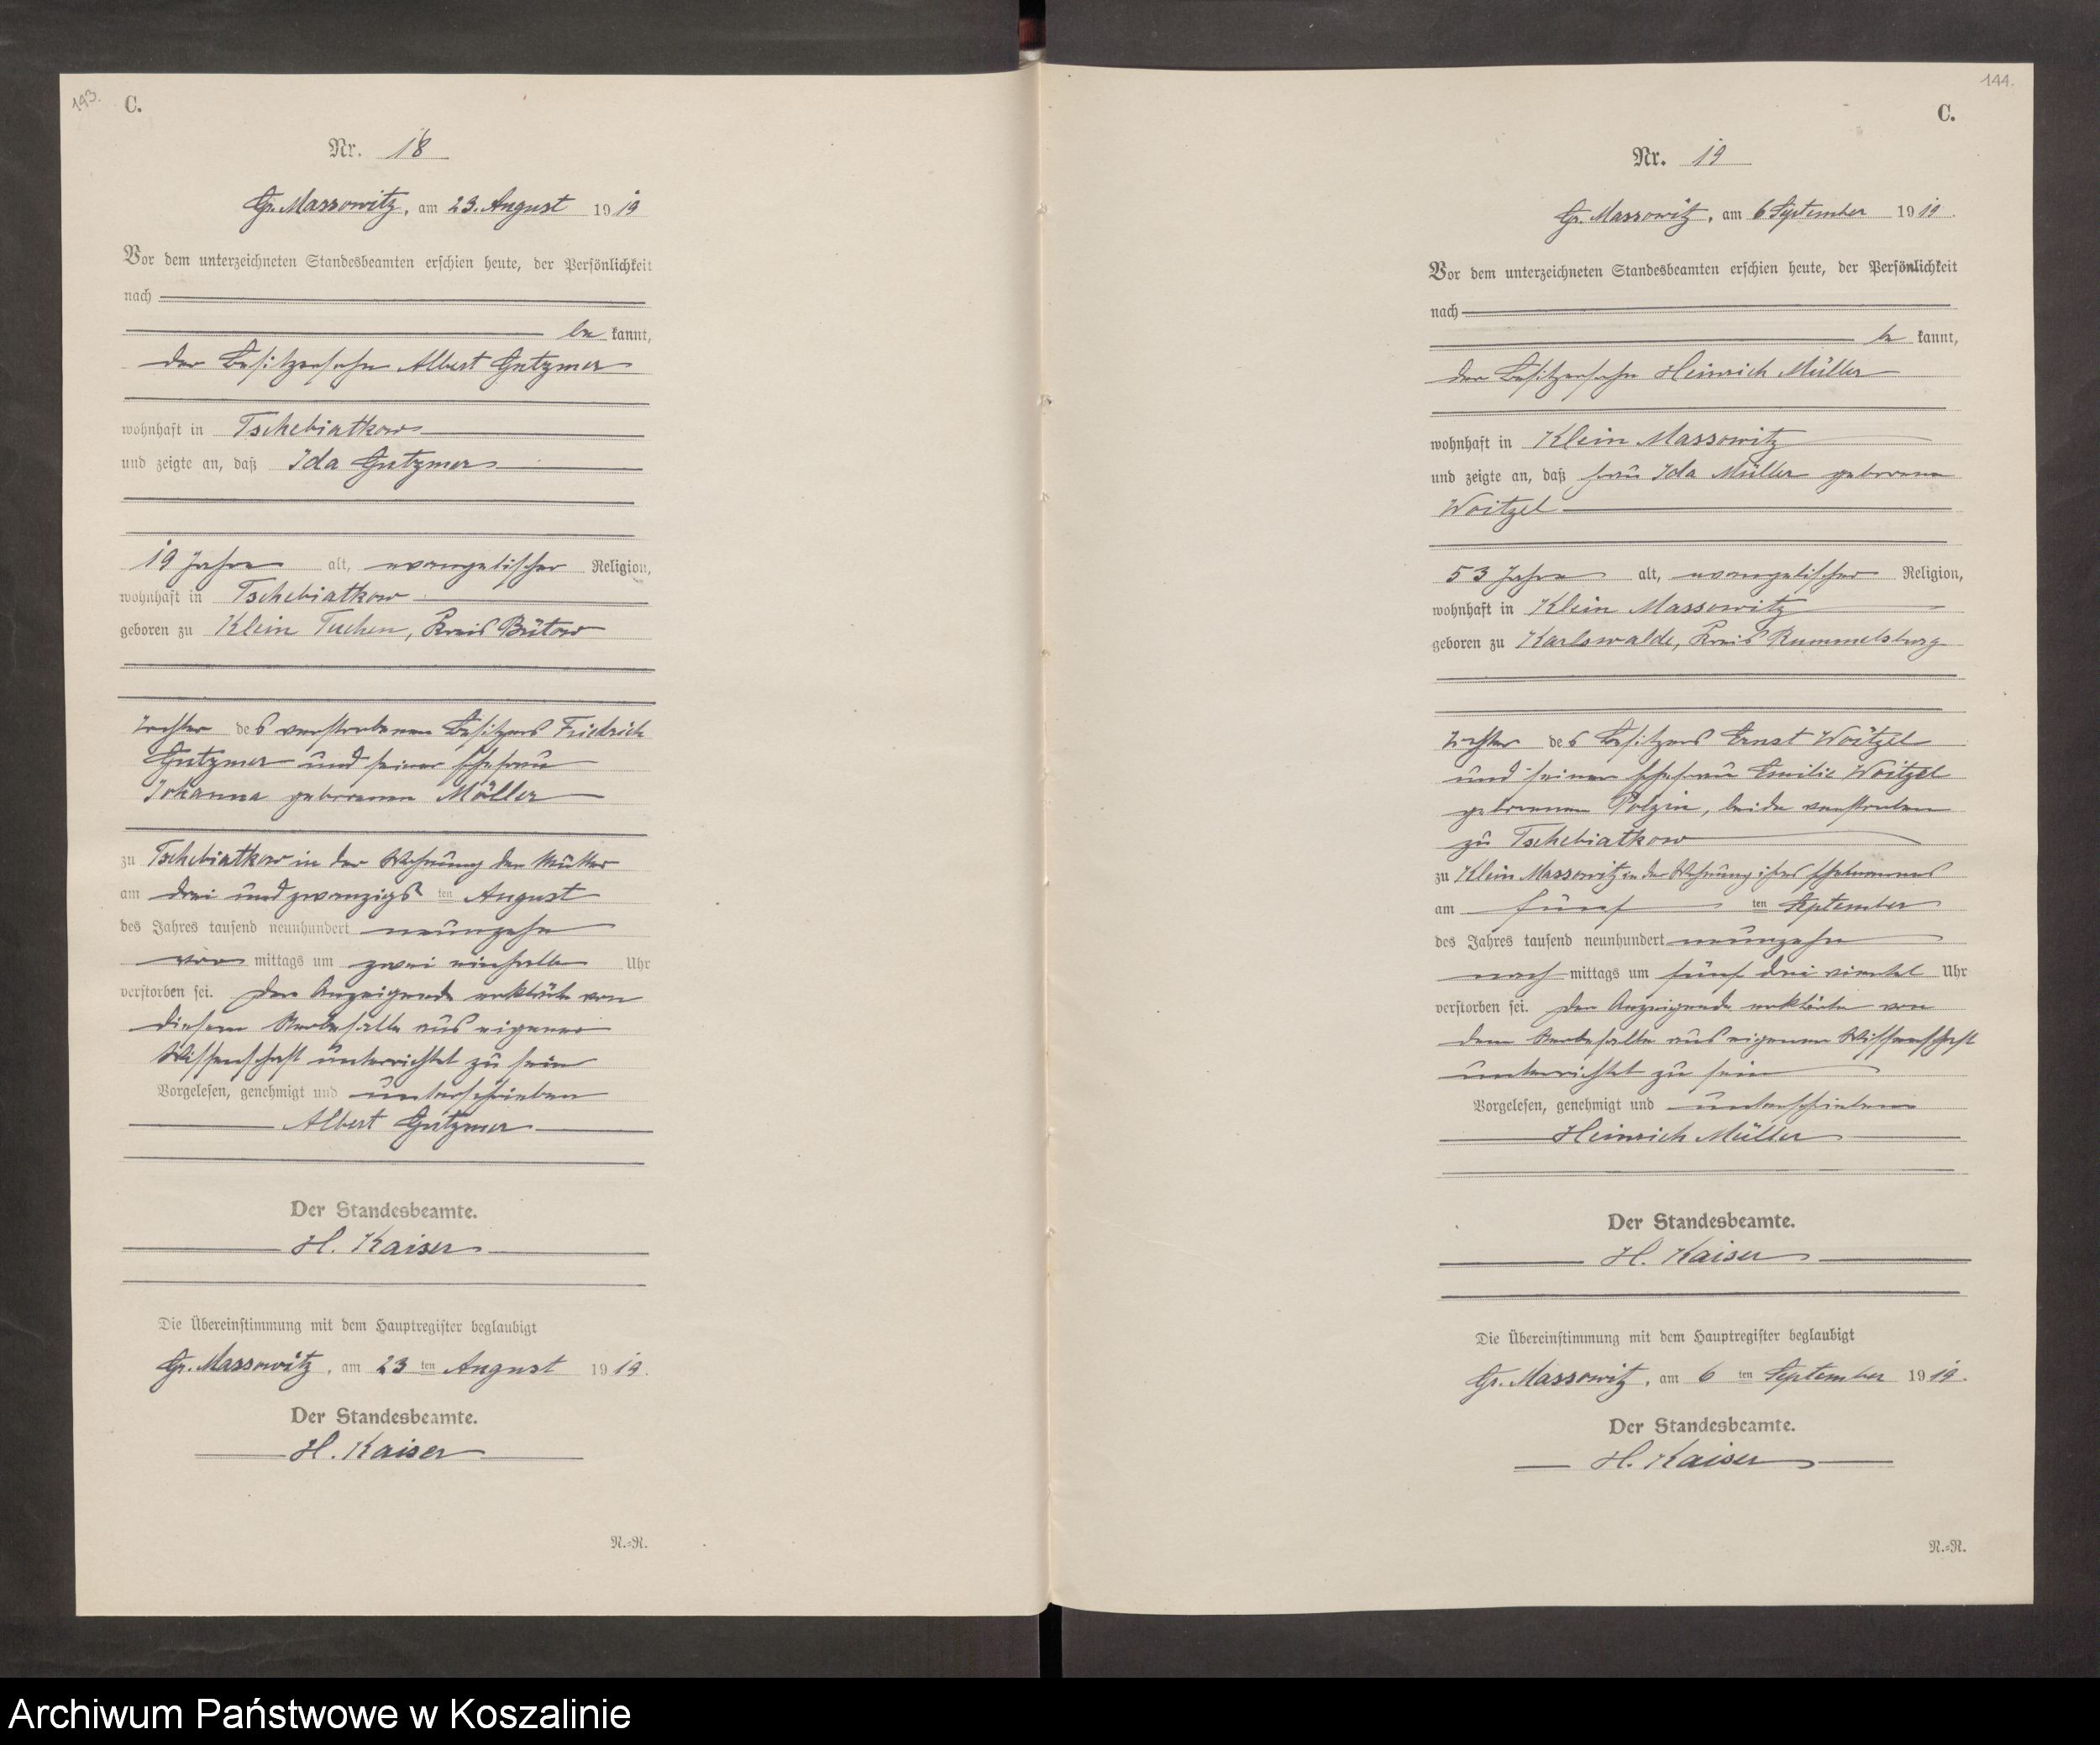 143.
C.
Nr. 18
Gr. Massowitz, am 23. August 1919
Vor dem unterzeichneten Standesbeamten erschien heute, der Persönlichkeit
nach
be kannt,
der Besitzersohn Albert Gutzmer
wohnhaft in Tschebiatkow
und zeigte an, daß Ida Gutzmer
19 Jahre alt, evangelischer Religion,
wohnhaft in Tschebiatkow
geboren zu Klein Tuchen, Kreis Bütow
Tochter des verstorbenen Besitzers Friedrich
Gutzmer und seiner Ehefrau
Johanna geborenen Möller
zu Tschebiatkow in der Wohnung der Mutter
am drei und zwanzigsten August
des Jahres tausend neunhundert neunzehn
vor mittags um zwei einhalb Uhr
verstorben sei. Der Anzeigende erklärte von
diesem Sterbefalle aus eigener
Wissenschaft unterrichtet zu sein
Vorgelesen, genehmigt und unterschrieben
Albert Gutzmer
Der Standesbeamte.
H. Kaiser
Die Übereinstimmung mit dem Hauptregister beglaubigt
Gr. Massowitz, am 23 ten August 1919.
Der Standesbeamte.
H. Kaiser
N.=N.
144.
C.
Nr. 19
Gr. Massowitz, am 6 September 1919.
Vor dem unterzeichneten Standesbeamten erschien heute, der Persönlichkeit
nach
be kannt,
der Besitzersohn Heinrich Müller
wohnhaft in Klein Massowitz
und zeigte an, daß Frau Ida Müller geborene
Woitzel
53 Jahre alt, evangelischer Religion,
wohnhaft in Klein Massowitz
geboren zu Karlswalde, Kreis Rummelsburg
Tochter des Besitzers Ernst Woitzel
und seiner Ehefrau Emilie Woitzel
geborenen Polzin, beide verstorben
zu Tschebiatkow
zu Klein Massowitz in der Wohnung ihres Ehemannes
am fünf ten September
des Jahres tausend neunhundert neunzehn
nach mittags um fünf drei viertel Uhr
verstorben sei. Der Anzeigende erklärte von
dem Sterbefalle aus eigener Wissenschaft
unterrichtet zu sein
Vorgelesen, genehmigt und unterschrieben
Heinrich Müller
Der Standesbeamte.
H. Kaiser
Die Übereinstimmung mit dem Hauptregister beglaubigt
Gr. Massowitz, am 6 ten September 1919.
Der Standesbeamte.
H. Kaiser
N.=N.
Archiwum Państwowe w Koszalinie